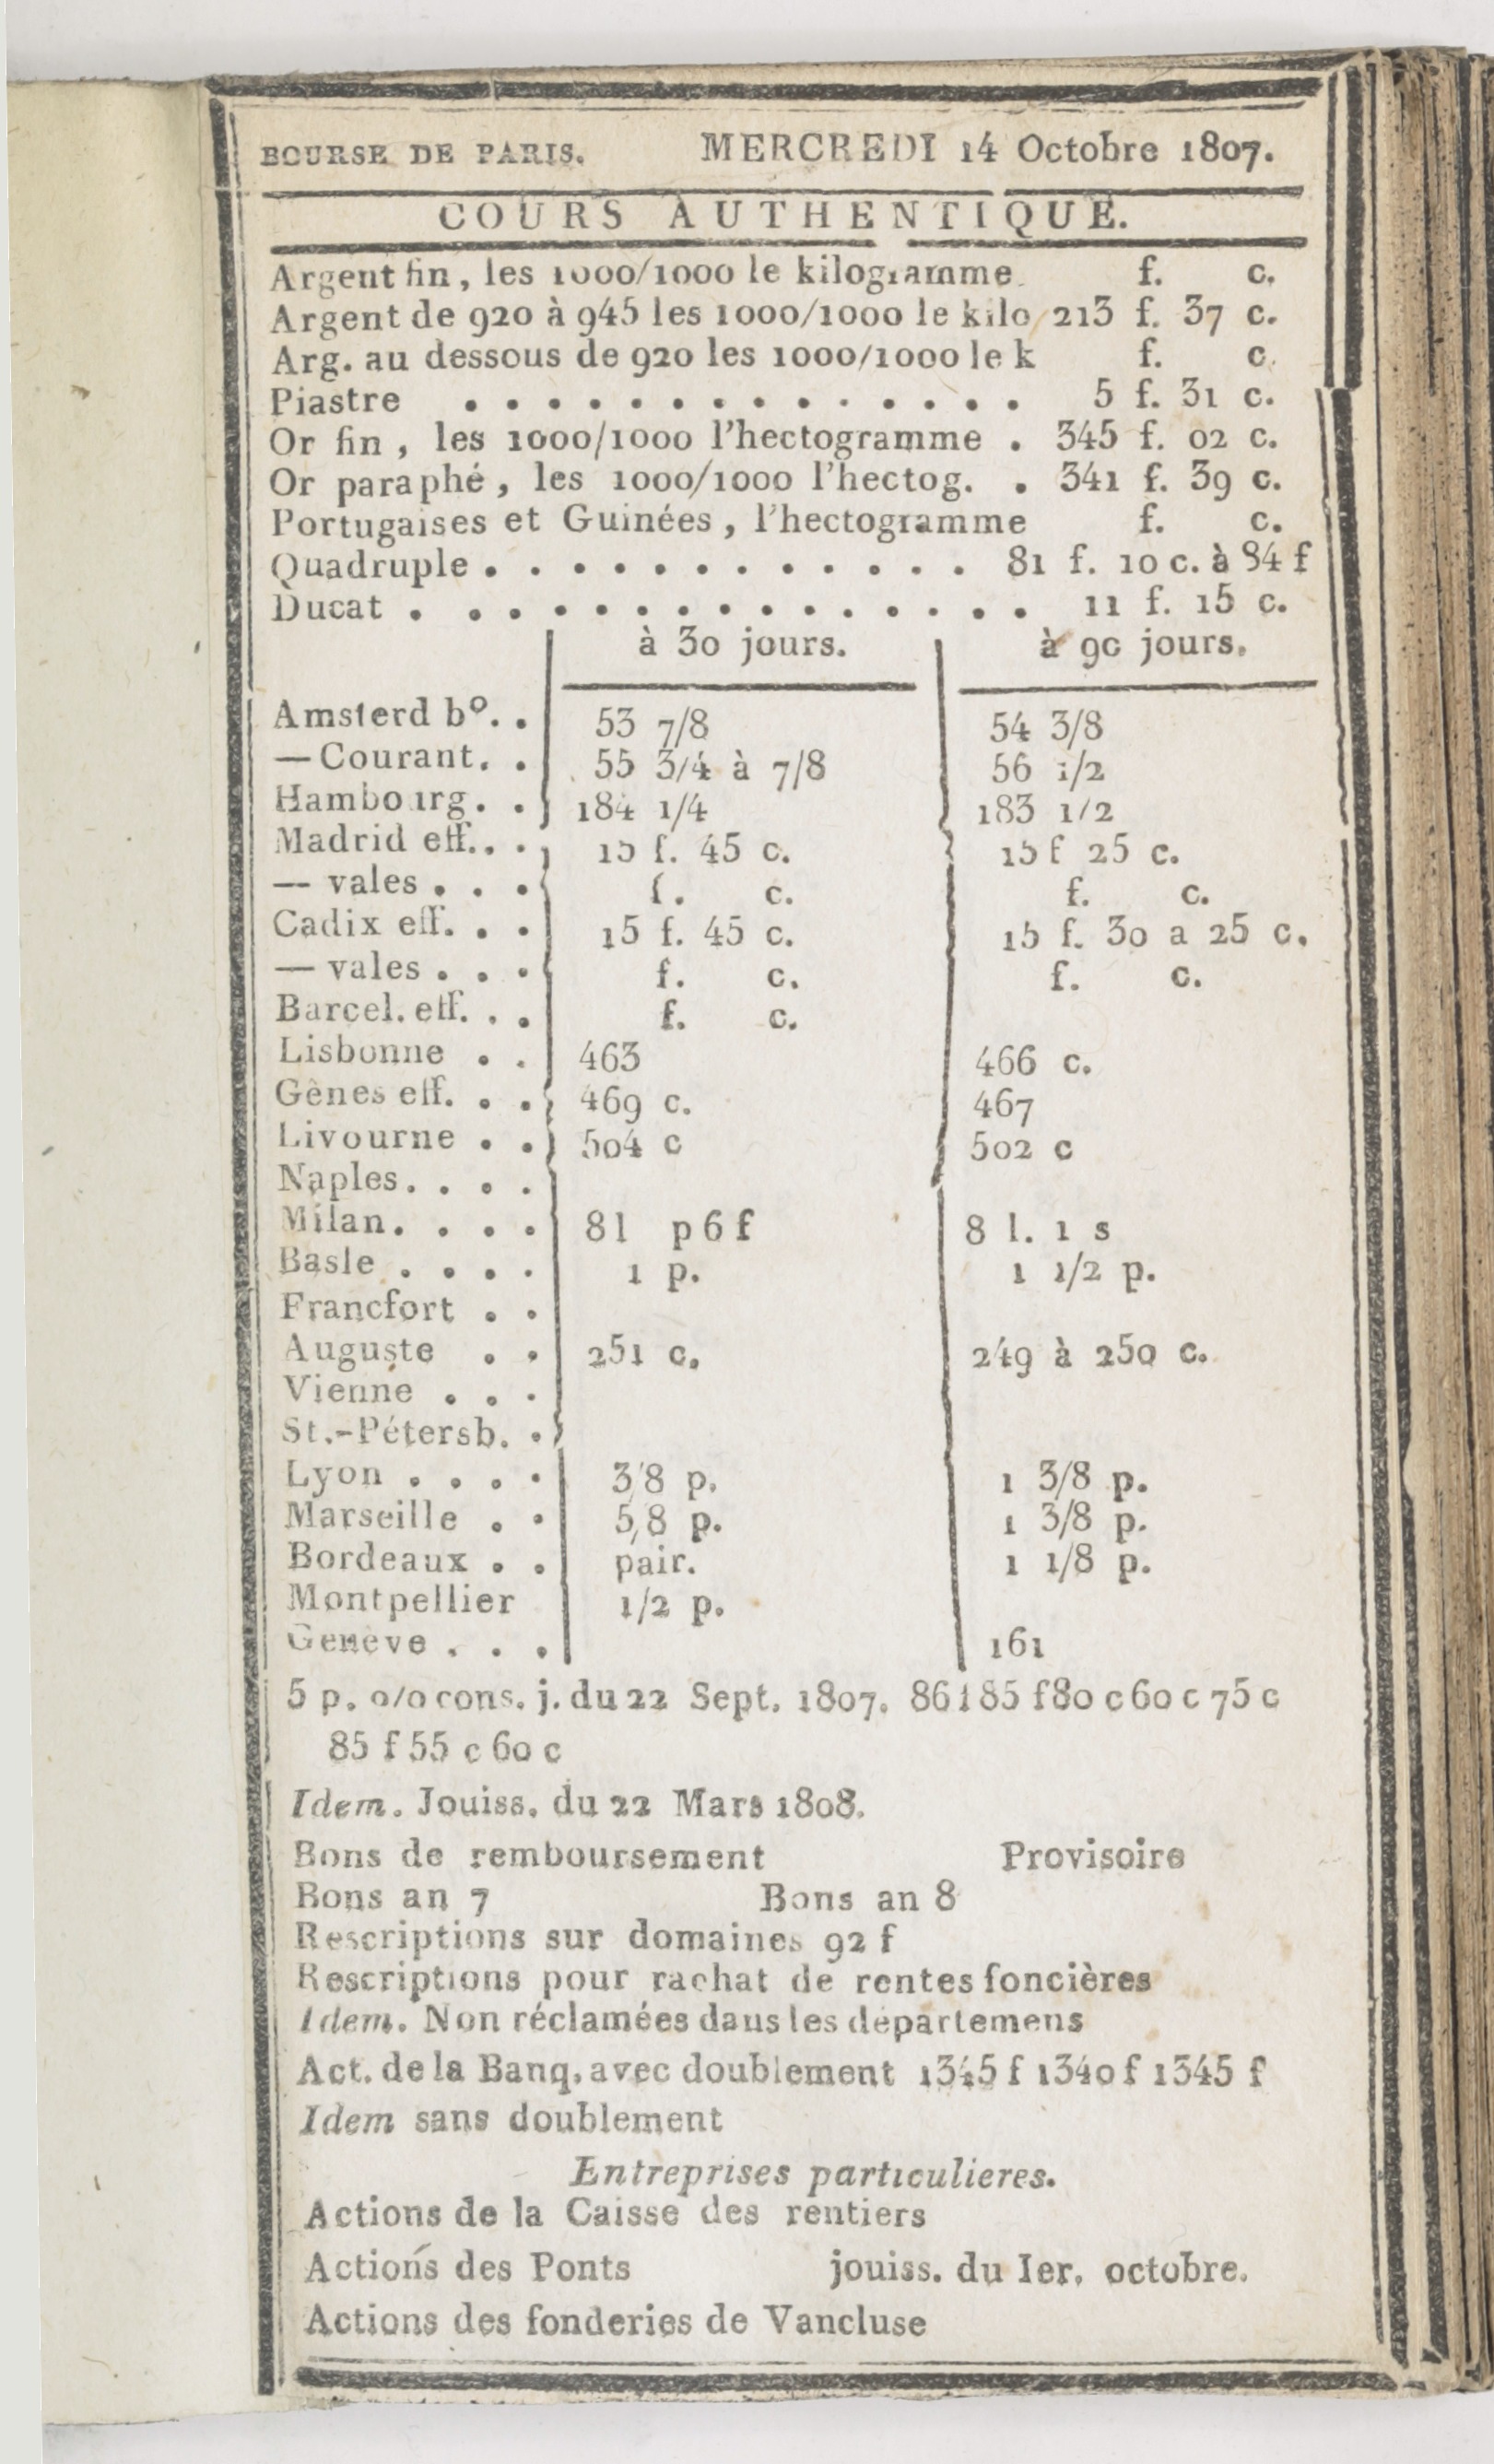 BOURSE DE PARIS. MERCREDI 14 Octobre 1807.
COURS AUTHENTIQUE.
Argent fin, les 1000/1000 le kilogramme. f. c.
Argent de 920 à 945 les 1000/1000 le kilo 213 f. 37 c.
Arg. au dessous de 920 les 1000/1000 le k f. c.
Piastre . . . . . . . . . . . . . . 5 f. 31 c.
Or fin, les 1000/1000 l'hectogramme . 345 f. 02 c.
Or paraphé, les 1000/1000 l'hectog. . 341 f. 39 c.
Portugaises et Guinées, l'hectogramme f. c.
Quadruple . . . . . . . . . . . . 81 f. 10 c. à 84 f
Ducat . . . . . . . . . . . . . . . 11 f. 15 c.
à 30 jours. à 90 jours.
Amsterd bº. . 53 7/8 54 3/8
— Courant. . 55 3/4 à 7/8 56 1/2
Hambourg. . 184 1/4 183 1/2
Madrid eff. . . 15 f. 45 c. 15 f 25 c.
— vales . . . f. c. f. c.
Cadix eff. . . 15 f. 45 c. 15 f. 30 a 25 c.
— vales . . . f. c. f. c.
Barcel. eff. . . f. c.
Lisbonne . . 463 466 c.
Gênes eff. . . 469 c. 467
Livourne . . 504 c 502 c
Naples. . . .
Milan. . . . 8 l p 6 f 8 l. 1 s
Basle . . . . 1 p. 1 1/2 p.
Francfort . .
Auguste . . 251 c. 249 à 250 c.
Vienne . . .
St.-Pétersb. .
Lyon . . . . 3/8 p. 1 3/8 p.
Marseille . . 5/8 p. 1 3/8 p.
Bordeaux . . pair. 1 1/8 p.
Montpellier 1/2 p.
Genève . . . 161
5 p. o/o cons. j. du 22 Sept. 1807. 86 f 85 f 80 c 60 c 75 c
85 f 55 c 60 c
Idem. Jouiss. du 22 Mars 1808.
Bons de remboursement Provisoire
Bons an 7 Bons an 8
Rescriptions sur domaines 92 f
Rescriptions pour rachat de rentes foncières
Idem. Non réclamées dans les départemens
Act. de la Banq. avec doublement 1345 f 1340 f 1345 f
Idem sans doublement
Entreprises particulieres.
Actions de la Caisse des rentiers
Actions des Ponts jouiss. du Ier. octobre.
Actions des fonderies de Vancluse